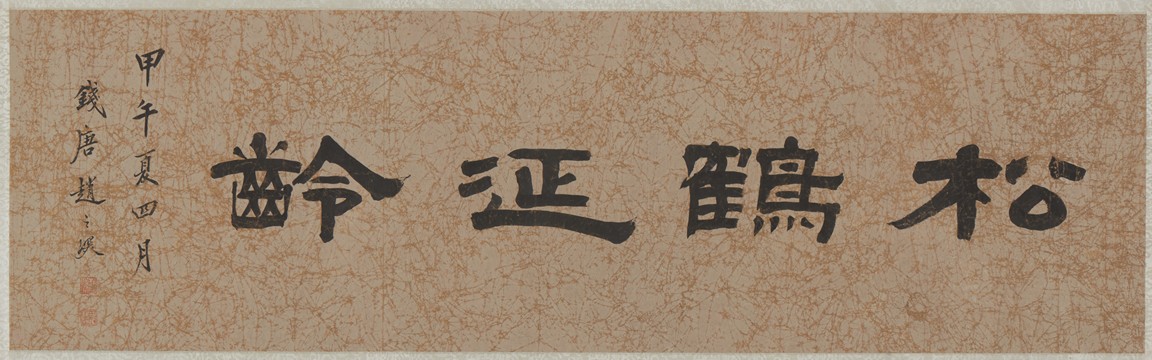 松鶴延齡
甲午夏四月
錢唐趙之琛